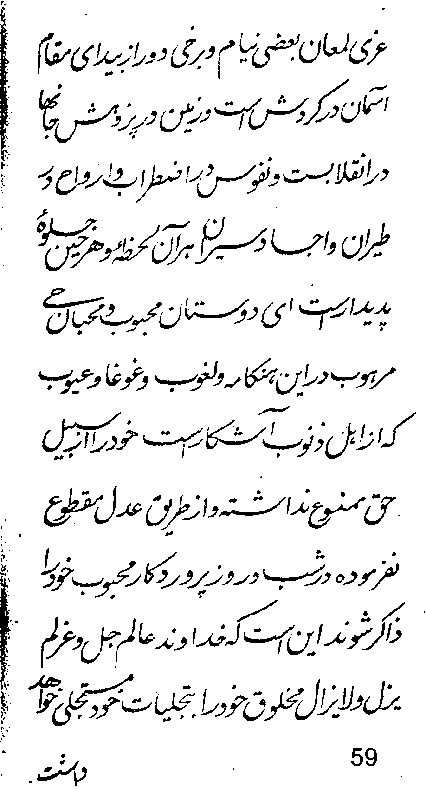 غری لمعان بعضی نیام و برخی دور از بیدای مقام
آسمان در گردش است و زمین در پرورش جانها
در انقلابست و نفوس در اضطراب و ارواح در
طیران و اجساد در سیران هر آن لحظهٔ و هر حین جلوهٔ
پدیدار است ای دوستان محبوب و محبان حی
مرهوب در این هنگامه و لغوب و غوغا و عیوب
که از اهل ذنوب آشکار است خود را از سبیل
حق ممنوع نداشته و از طریق عدل مقطوع
نفرموده در شب و روز پروردگار محبوب خود را
ذاکر شوند این است که خداوند عالم جل و عز لم
یزل و لا یزال مخلوق خود را بتجلیات خود متجلی خواهد
داشت.
59